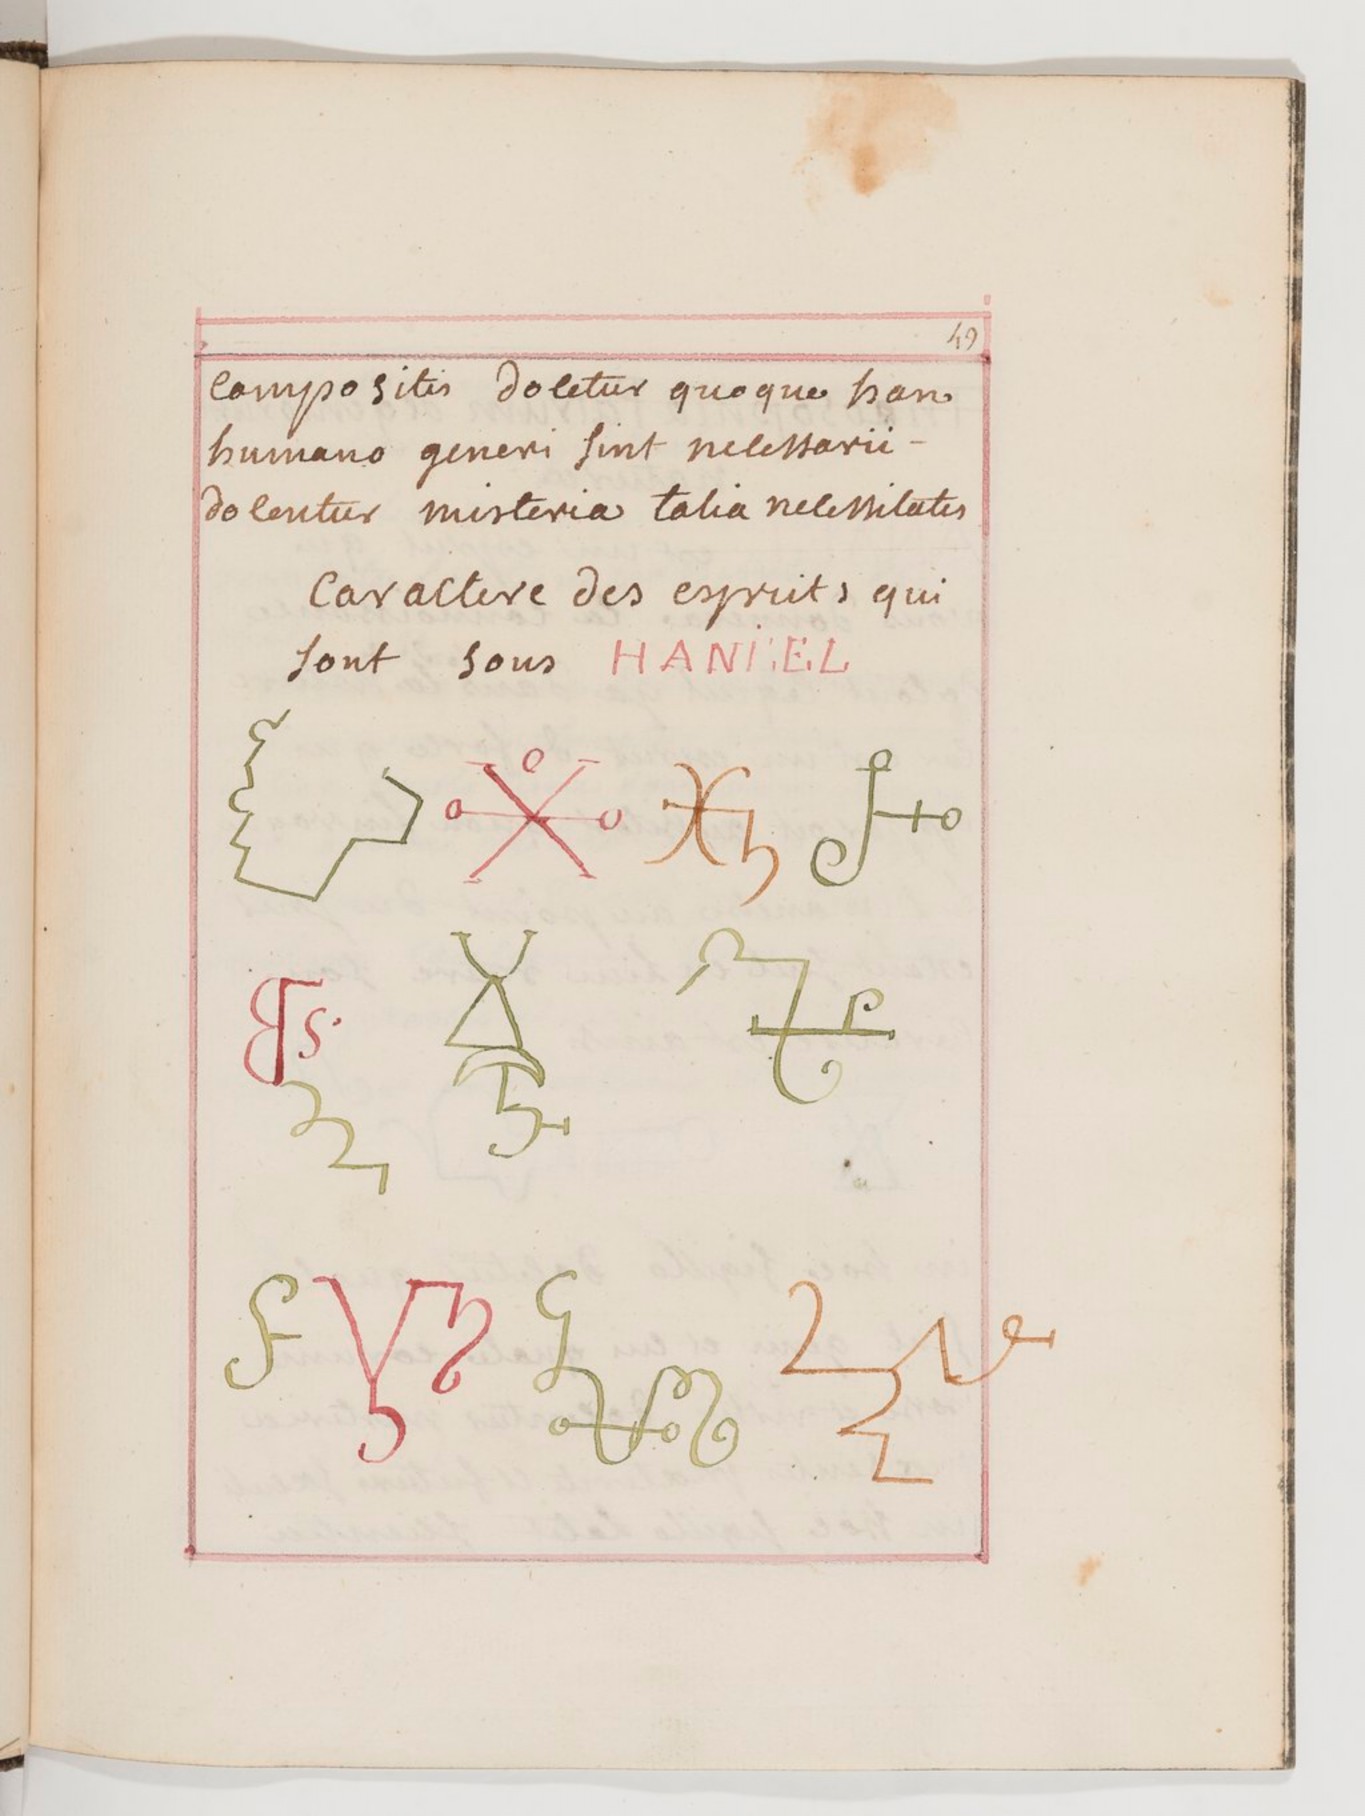 49
compositis docetur quoque han
humano generi sint necessarii -
docentur misteria talia necessitatis
Caractere des esprits qui
sont sous HANIEL